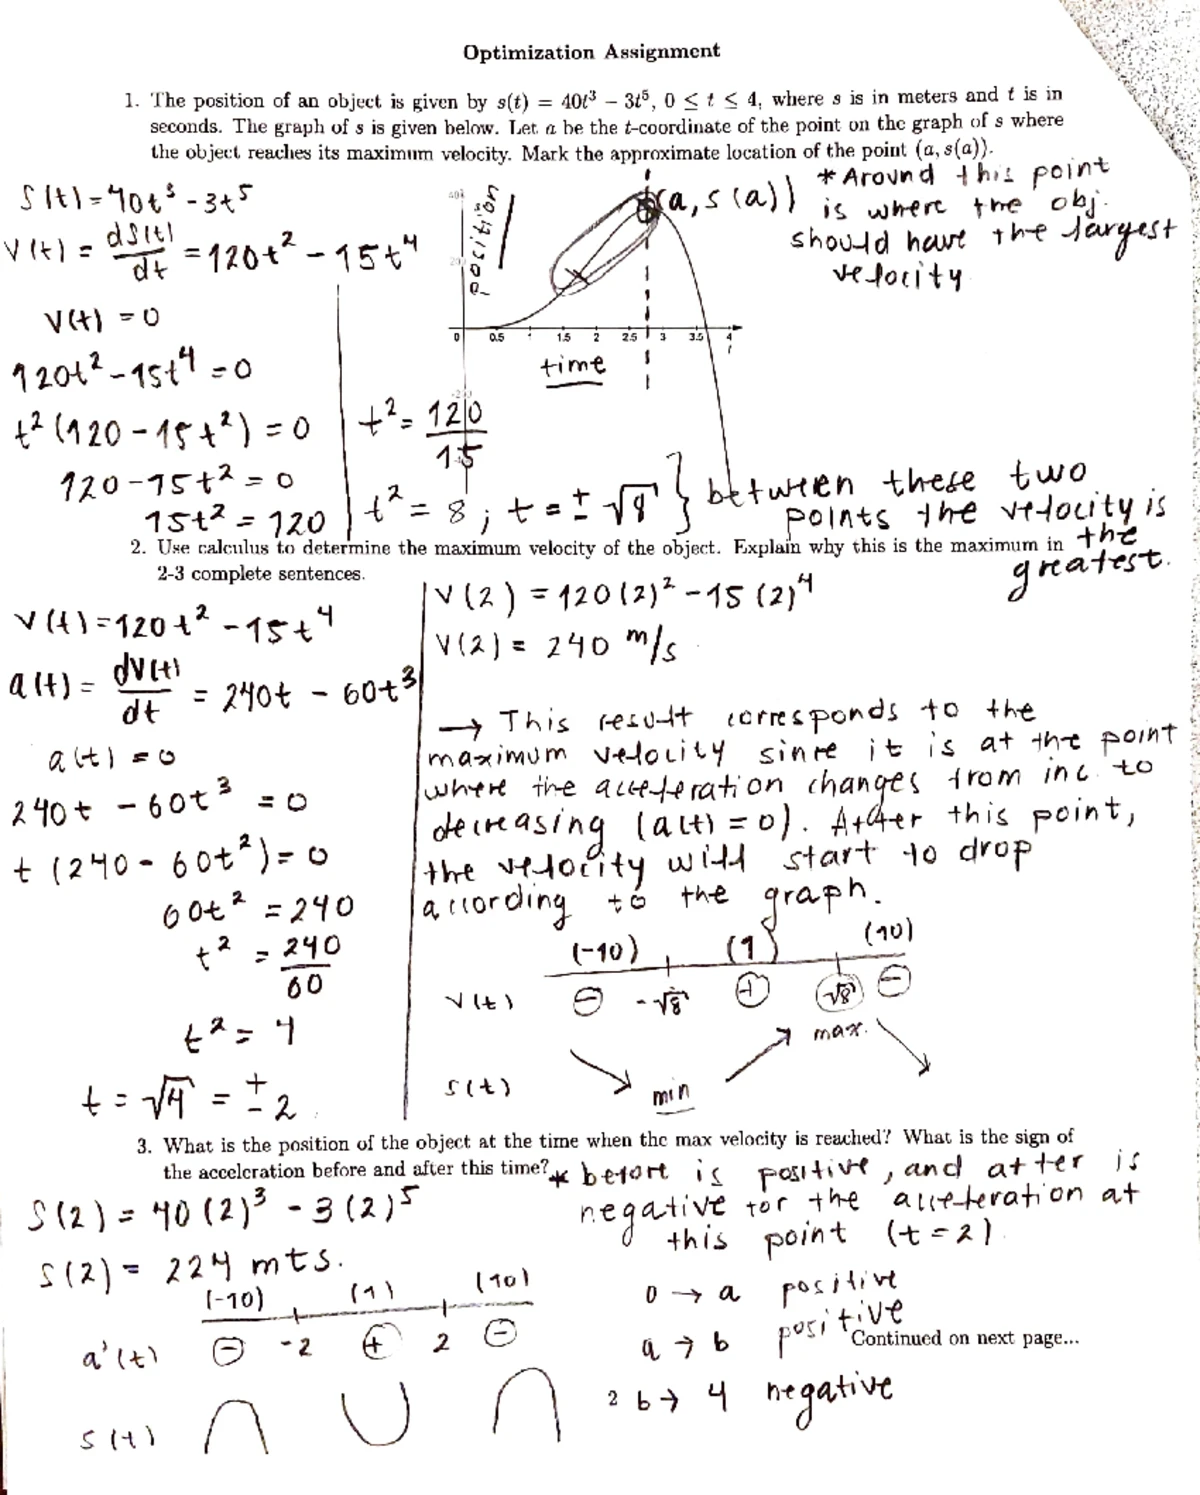 Optimization Assignment
1. The position of an object is given by s(t) = 40t³ − 3t⁵, 0 ≤ t ≤ 4, where s is in meters and t is in
seconds. The graph of s is given below. Let a be the t-coordinate of the point on the graph of s where
the object reaches its maximum velocity. Mark the approximate location of the point (a, s(a)).
* Around this point
is where the obj.
should have the largest
velocity
S(t) = 40t³ - 3t⁵
V(t) = dS(t)/dt = 120t² - 15t⁴
V(t) = 0
120t² - 15t⁴ = 0
t² (120 - 15t²) = 0
120 - 15t² = 0
15t² = 120
position
(a, s(a))
0 0.5 1 1.5 2 2.5 3 3.5 4
t
time
t² = 120/15
t² = 8 ; t = ± √8 } between these two
points the velocity is
the
greatest.
2. Use calculus to determine the maximum velocity of the object. Explain why this is the maximum in
2-3 complete sentences.
V(t) = 120t² - 15t⁴
a(t) = dV(t)/dt = 240t - 60t³
a(t) = 0
240t - 60t³ = 0
t (240 - 60t²) = 0
60t² = 240
t² = 240/60
t² = 4
t = √4 = ± 2
V(2) = 120(2)² - 15(2)⁴
V(2) = 240 m/s
→ This result corresponds to the
maximum velocity since it is at the point
where the acceleration changes from inc. to
decreasing (a(t) = 0). After this point,
the velocity will start to drop
according to the graph.
(-10) (1) (10)
V(t) ⊖ -√8 ⊕ √8 ⊖
max.
s(t) min
3. What is the position of the object at the time when the max velocity is reached? What is the sign of
the acceleration before and after this time?
* before is positive, and after is
negative for the acceleration at
this point (t = 2).
S(2) = 40(2)³ - 3(2)⁵
S(2) = 224 mts.
(-10) (1) (10)
a'(t) ⊖ -2 ⊕ 2 ⊖
s(t)
0 → a positive
a → b positive
Continued on next page...
2 b → 4 negative